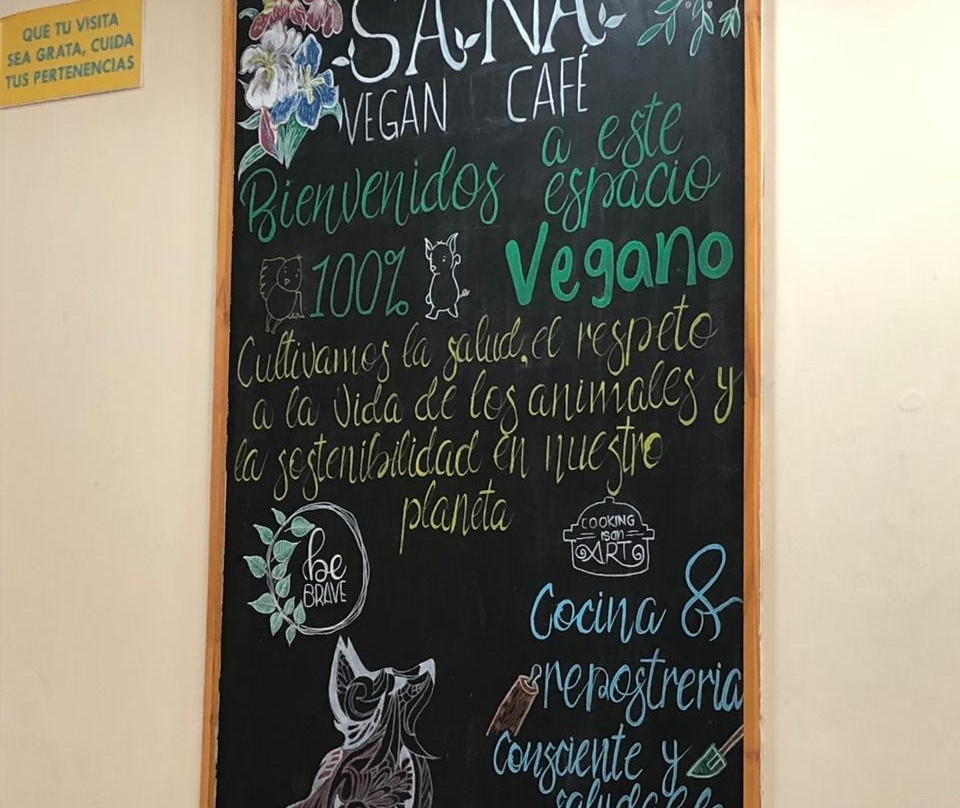 QUE TU VISITA
SEA GRATA, CUIDA
TUS PERTENENCIAS
SANA
VEGAN CAFÉ
Bienvenidos a este
espacio
100% Vegano
Cultivamos la salud, el respeto
a la vida de los animales y
la sostenibilidad en nuestro
planeta
be
BRAVE
COOKING
is an
ART
Cocina &
repostreria
Consciente y
saludable